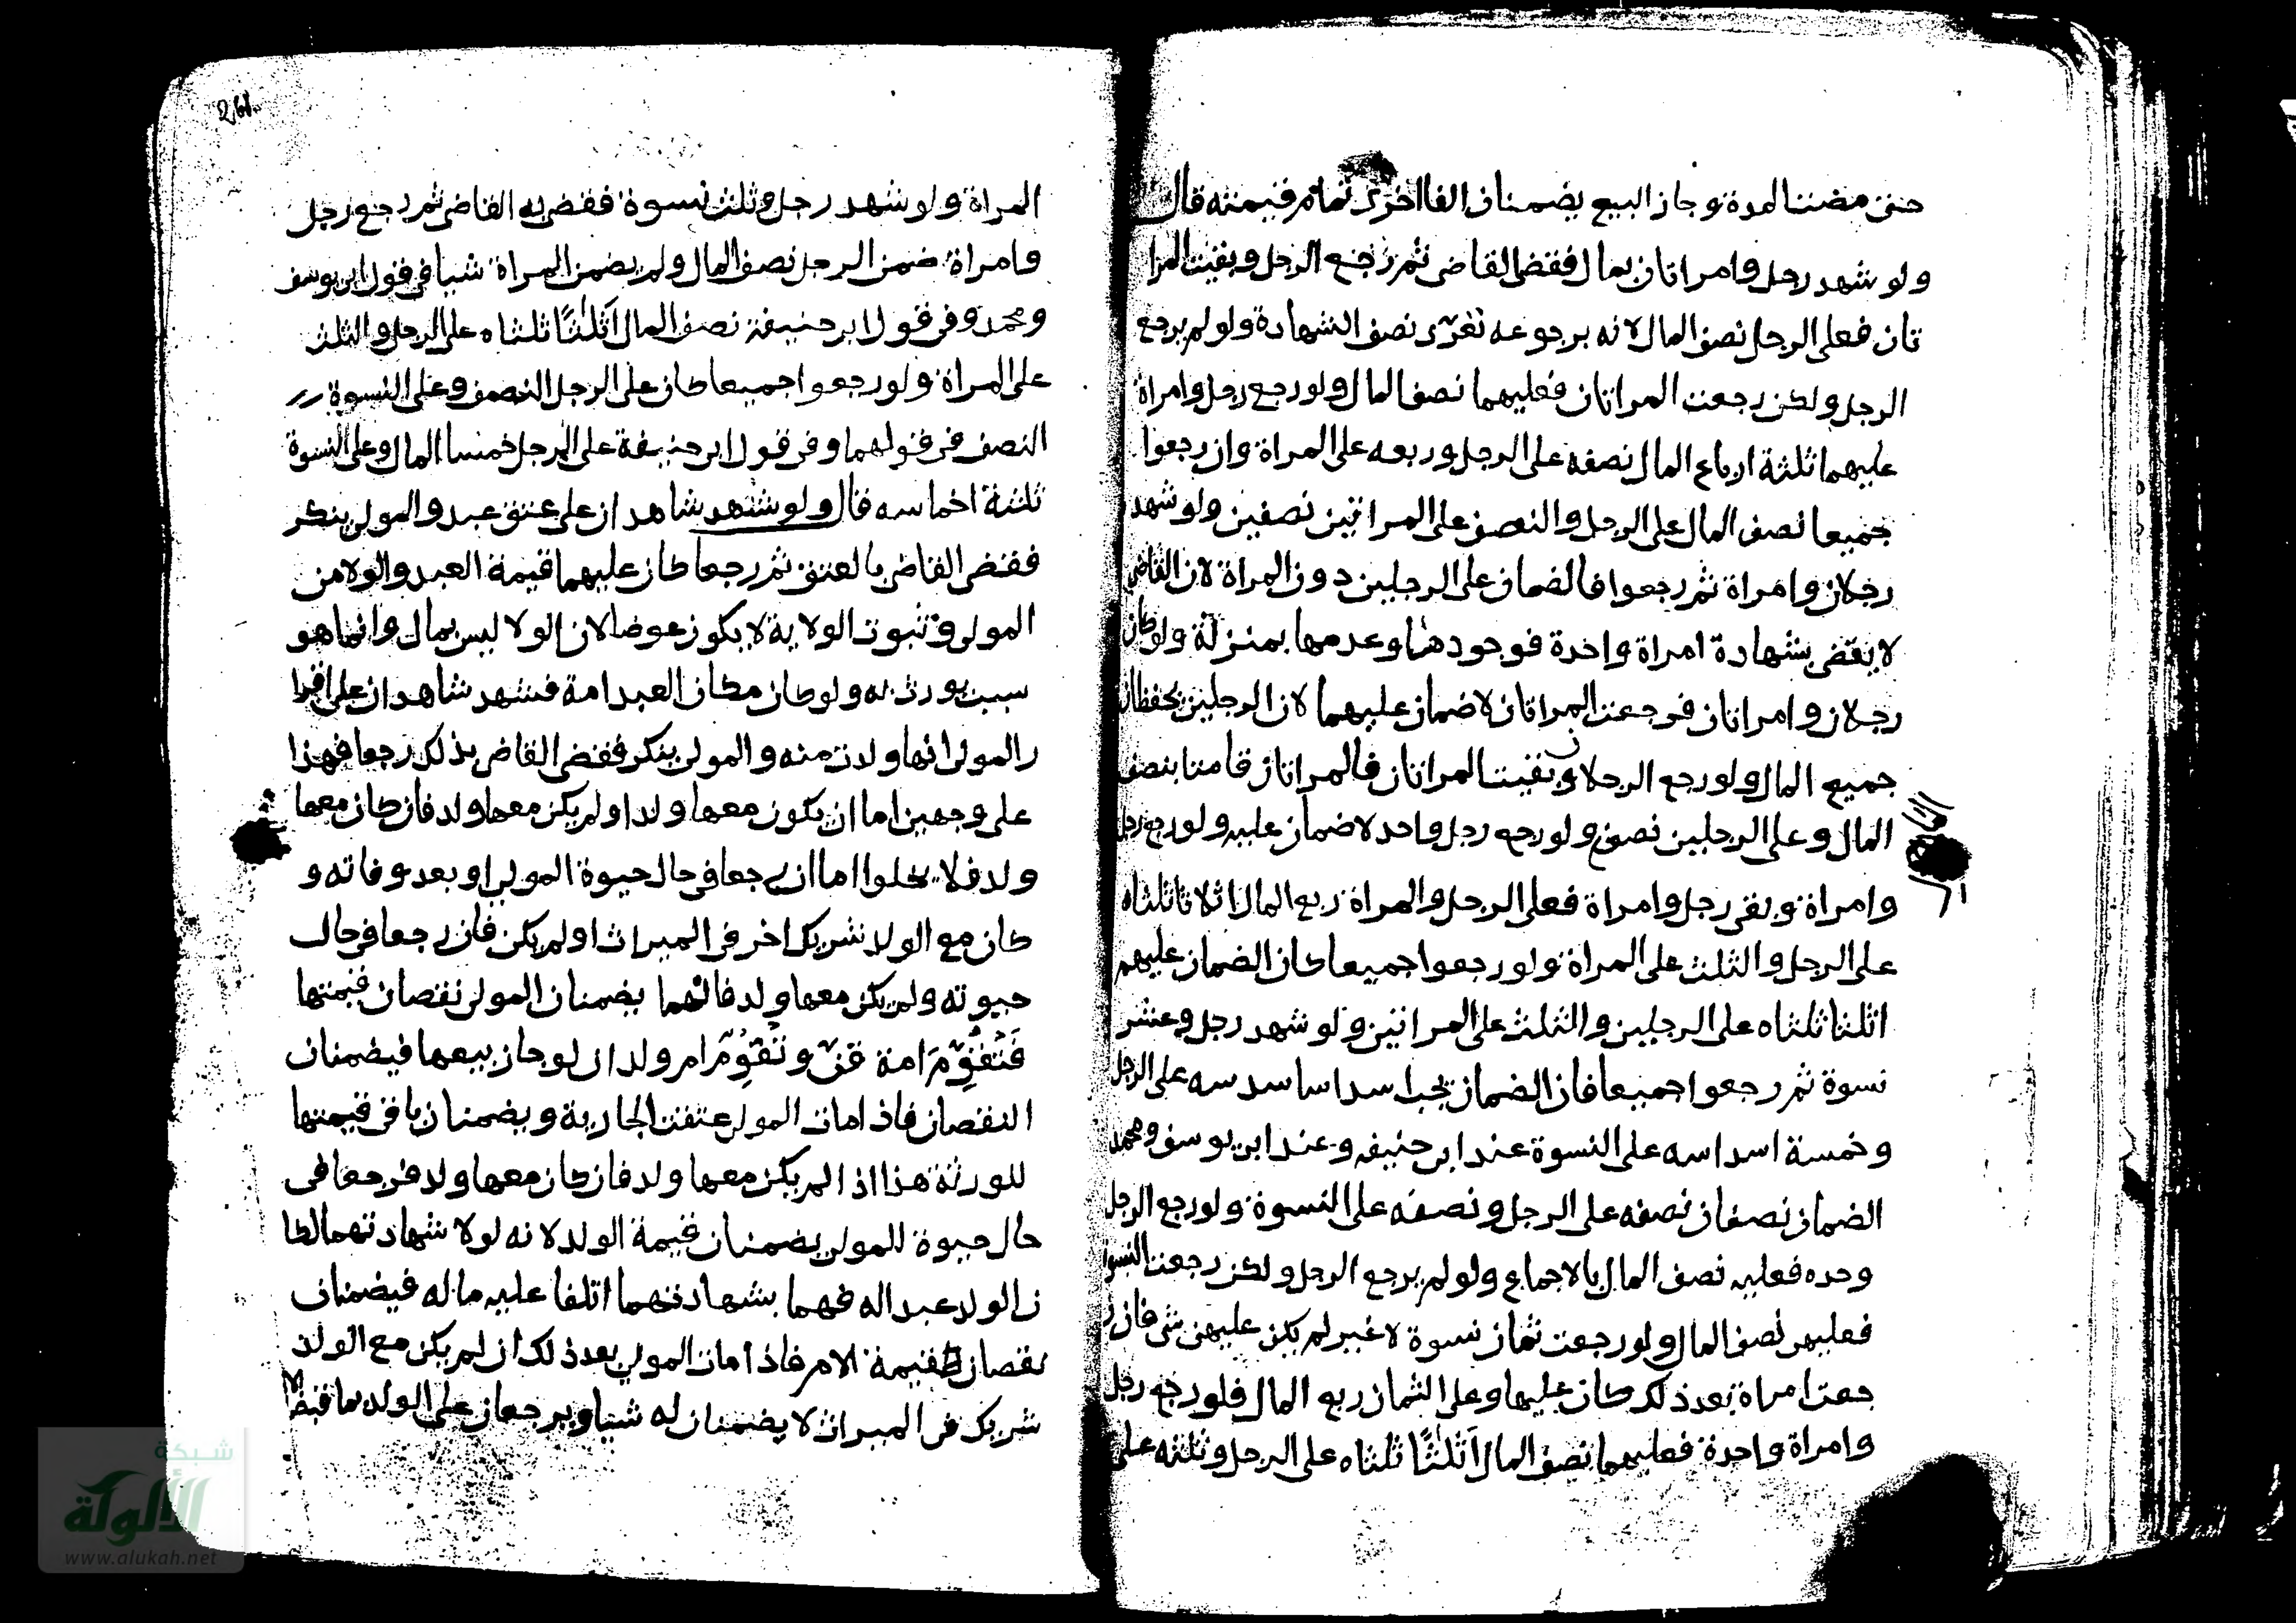 حتى مضت المدة وجاز البيع يضمنان الفا اخرى تمام قيمته قال
ولو شهد رجل وامراتان بمال فقضى القاضى ثم رجع الرجل وبقيت المرا
تان فعلى الرجل نصف المال لانه برجوعه تعرى نصف الشهادة ولو لم يرجع
الرجل ولكن رجعت المراتان فعليهما نصف المال ولو رجع رجل وامراة
عليهما ثلثة ارباع المال نصفه على الرجل وربعه على المراة وان رجعوا
جميعا نصف المال على الرجل والنصف على المراتين نصفين ولو شهد
رجلان وامراة ثم رجعوا فالضمان على الرجلين دون المراة لان القاضى
لا يقضى بشهادة امراة واحدة فوجودها وعدمها بمنزلة ولو كان
رجلان وامراتان فرجعت المراتان لا ضمان عليهما لان الرجلين يحفظان
جميع المال ولو رجع الرجلان وبقيت المراتان فالمراتان قامتا بنصف
المال وعلى الرجلين نصف ولو رجع رجل واحد لا ضمان عليه ولو رجع رجل
وامراة وبقى رجل وامراة فعلى الرجل والمراة ربع المال اثلاثا ثلثاه
على الرجل والثلث على المراة ولو رجعوا جميعا كان الضمان عليهم
اثلثا ثلثاه على الرجلين والثلث على المراتين ولو شهد رجل وعشر
نسوة ثم رجعوا جميعا فان الضمان يجب اسداسا سدسه على الرجل
وخمسة اسداسه على النسوة عند ابى حنيفه وعند ابى يوسف ومحمد
الضمان نصفان نصفه على الرجل ونصفه على النسوة ولو رجع الرجل
وحده فعليه نصف المال بالاجماع ولو لم يرجع الرجل ولكن رجعت النسوا
فعليهن نصف المال ولو رجعت ثمان نسوة لا غير لم يكن عليهن شى فان ر
جعت امراة بعد ذلك كان عليها وعلى الثمان ربع المال فلو رجع رجل
وامراة واحدة فعليهما نصف المال اَثلثًا ثلثاه على الرجل وثلثه على
261
المراة ولو شهد رجل وثلث نسوة فقضى به القاضى ثم رجع رجل
وامراة ضمن الرجل نصف المال ولم يضمن المراة شيا فى قول ابى يوسف
ومحمد وفى قول ابى حنيفة نصف المال اَثلثًا ثلثاه على الرجل والثلث
على المراة ولو رجعوا جميعا كان على الرجل النصف وعلى النسوة
النصف فى قولهما وفى قول ابى حنيفة على الرجل خمسا المال وعلى النسوة
ثلثة اخماسه قال ولو شهد شاهدان على عتق عبد والمولى ينكر
فقضى القاضى بالعتق ثم رجعا كان عليهما قيمة العبد والولا من
المولى وثبوت الولاية لا يكون عوضا لان الولا ليس بمال وانما هو
سبب يورث به ولو كان مكان العبد امة فشهد شاهدان على اقرا
ر المولى انها ولدت منه والمولى ينكر فقضى القاضى بذلك رجعا فهذا
على وجهين اما ان يكون معها ولد او لم يكن معها ولد فان كان معها
ولد فلا يخلوا اما ان رجعا فى حال حيوة المولى او بعد وفاته و
كان مع الولد شريك اخر فى الميراث او لم يكن فان رجعا فى حال
حيوته ولم يكن معها ولد فانهما يضمنان المولى نقصان قيمتها
فَتُقَوَّمَ امة قنّ وتُقوَّم ام ولد ان لو جاز بيعها فيضمنان
النقصان فاذا مات المولى عتقت الجارية ويضمنان باقى قيمتها
للورثة هذا اذا لم يكن معها ولد فان كان معها ولد فرجعا فى
حال حيوة المولى يضمنان قيمة الولد لانه لولا شهادتهما لكا
ن الولد عبدا له فهما بشهادتهما اتلفا عليه ماله فيضمنان
نقصان قيمة الام فاذا مات المولى بعد ذلك ان لم يكن مع الولد
شريك فى الميراث لا يضمنان له شيا ويرجعان على الولد بما قبض
شبكة
الألوكة
www.alukah.net